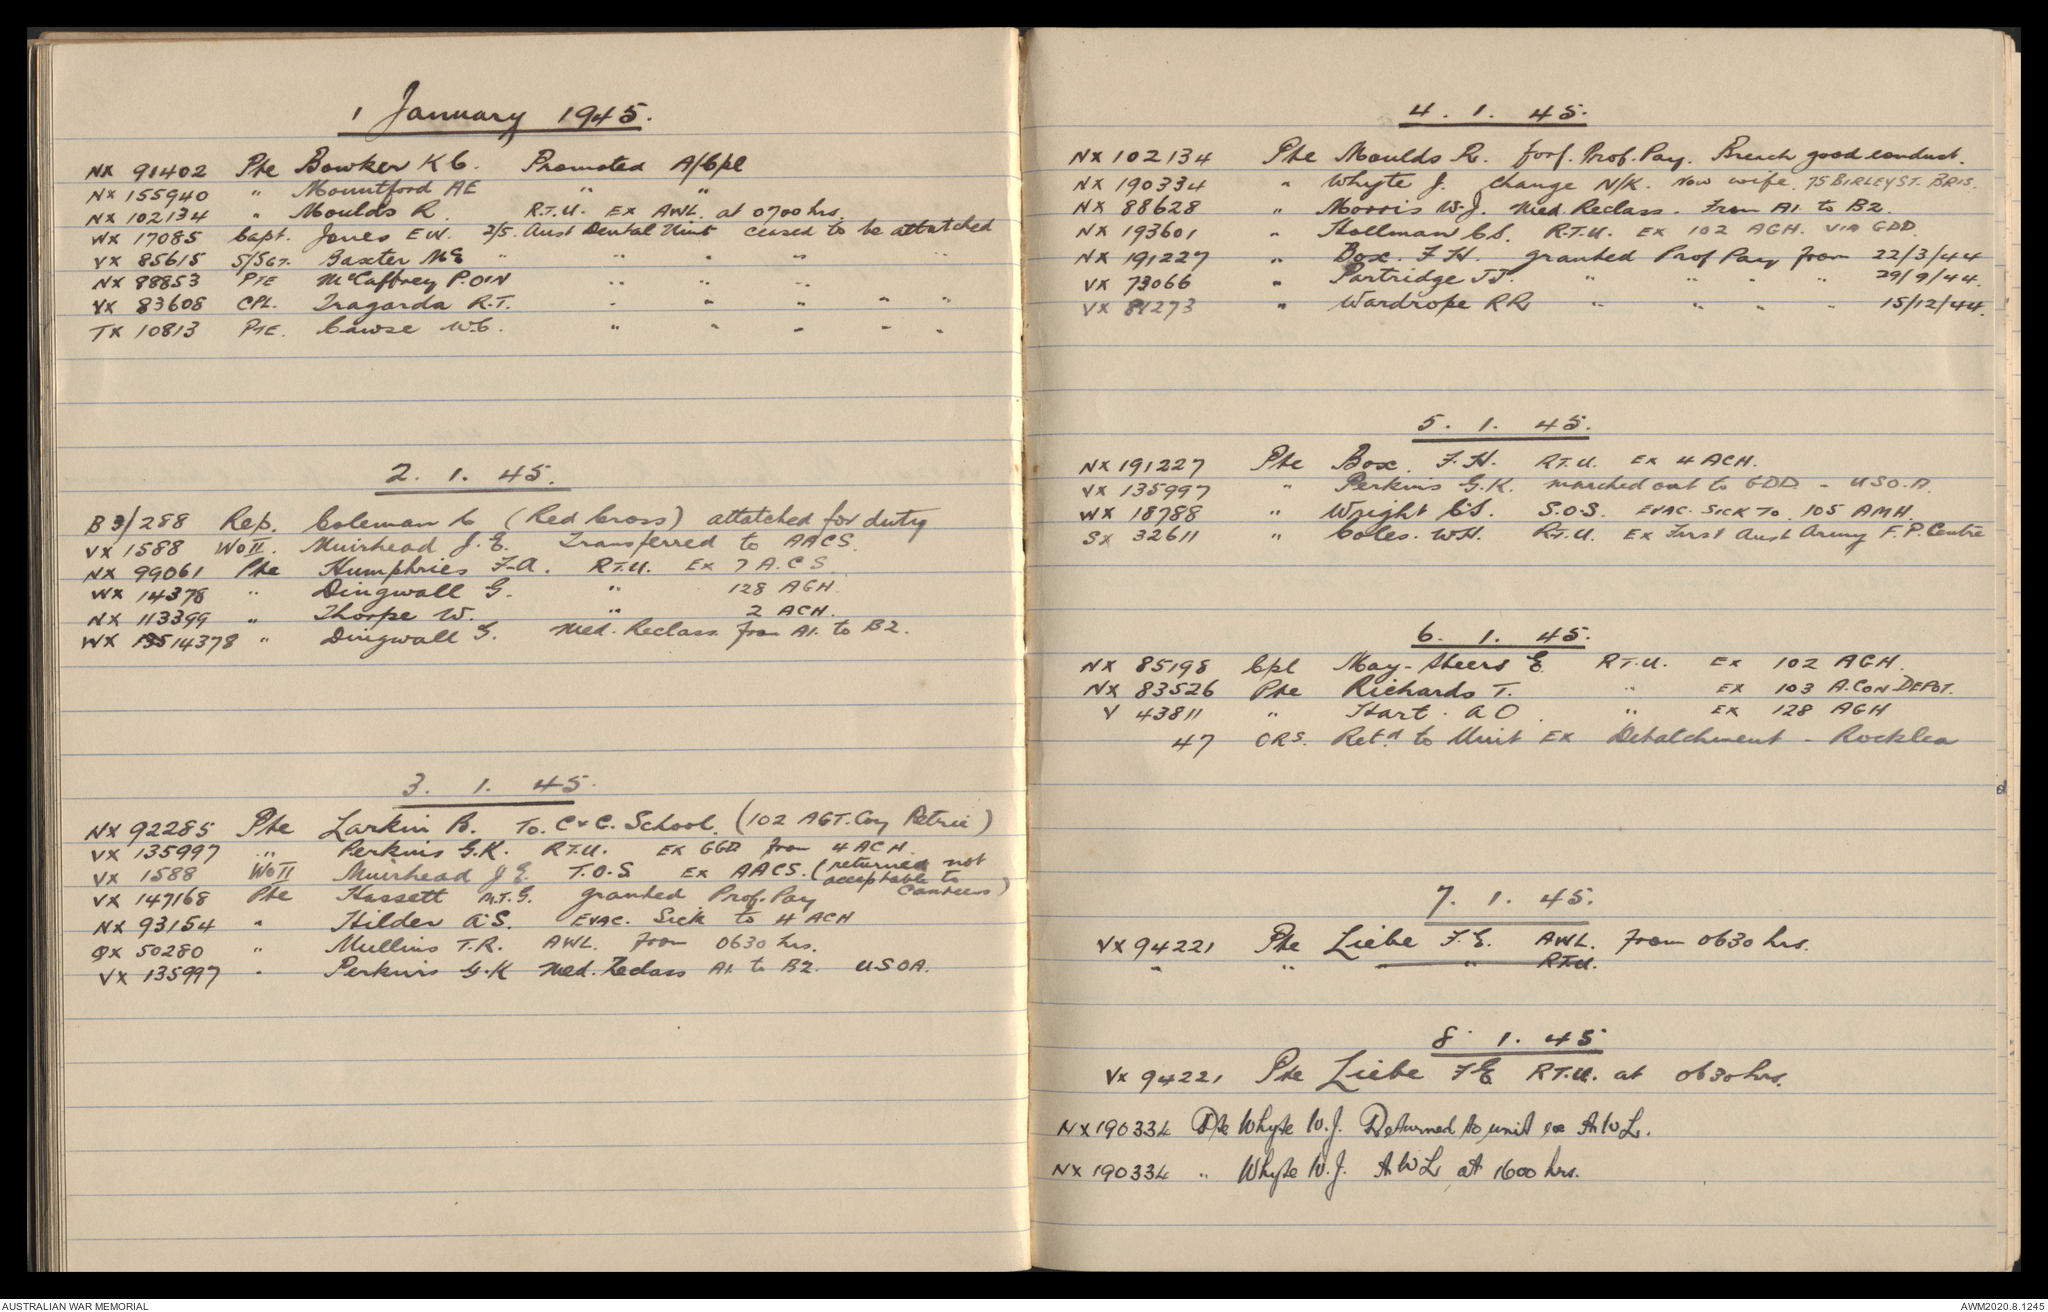 1 January 1945.
NX 91402 Pte Bowker K C. Promoted A/Cpl
NX 155940 " Mountford AE " "
NX 102134 " Moulds R. R.T.U. EX AWL. at 0700 hrs.
WX 17085 Capt. Jones E W. 2/5. Aust Dental Unit ceased to be attatched
VX 85615 S/SGT. Gaxter " " " " "
NX 88853 PTE McCaffrey P.OIN " " "
VX 83608 CPL. Tragarda R.T. " " " " "
TX 10813 PTE. Cawse W.C. " " " " "
2. 1. 45.
B3/288 Rep. Coleman (Red Cross) attatched for duty
VX 1588 WOII. Muirhead J.E. Transferred to AACS.
NX 99061 Pte Humphries F.A. R.T.U. EX 7 A.C S.
WX 14378 " Dingwall G. " 128 AGH.
NX 113399 " Thorpe W. " 2 ACH.
WX 14378 " Dingwall G. Med. Reclass from A1. to B2.
3. 1. 45.
NX 92285 Pte Larkin B. To. C & C. School. (102 AGT. Coy Petrie)
VX 135997 " Perkins G.K. R.T.U. EX GGD from 4 ACH.
VX 1588 WOII Muirhead J E. T.O.S. Ex AACS. (returned not
acceptable to Canteens)
VX 147168 Pte Hassett M.T.G. granted Prof. Pay
NX 93154 " Hilder A.S. EVAC. Sick to 4 ACH
QX 50280 " Mullins T.R. AWL. from 0630 hrs.
VX 135997 " Perkins G.K Med. Reclass A1. to B2. U.S.O.A.
4. 1. 45.
NX 102134 Pte Moulds R. forf. Prof. Pay. Breach good conduct.
NX 190334 " Whyte J. Change N/K. Now wife. 75 BIRLEY ST. BRIS.
NX 88628 " Morris W.J. Med. Reclass. from A1. to B2.
NX 193601 " Hollman C.S. R.T.U. EX 102 AGH. VIA GDD.
NX 191227 " Box. F.H. granted Prof Pay from 22/3/44
VX 73066 " Partridge J.J. " " " " 29/9/44.
VX 81273 " Wardrope R R " " " " 15/12/44.
5. 1. 45.
NX 191227 Pte Box. F.H. R.T.U. EX 4 ACH.
VX 135997 " Perkins G.K. marched out to GDD - U S O. A.
WX 18788 " Wright C.S. S.O.S. EVAC. SICK TO. 105 AMH.
SX 32611 " Coles. W.H. R.T.U. EX First Aust Army F.P. Centre
6. 1. 45.
NX 85198 Cpl May-Steers E. R.T.U. EX 102 AGH.
NX 83526 Pte Richards T. " EX 103 A. CON DEPOT.
V 43811 " Hart. A O. " EX 128 AGH
47 ORS. Ret.d to Unit EX Detatchment - Rocklea
7. 1. 45.
VX 94221 Pte Liebe F.E. AWL. from 0630 hrs.
" " " " R.T.U.
8 1. 45
VX 94221 Pte Liebe F E R.T.U. at 0630 hrs.
NX 190334 Pte Whyte W.J. Returned to unit ex A W L.
NX 190334 " Whyte W.J. A W L at 1600 hrs.
AUSTRALIAN WAR MEMORIAL
AWM2020.8.1245